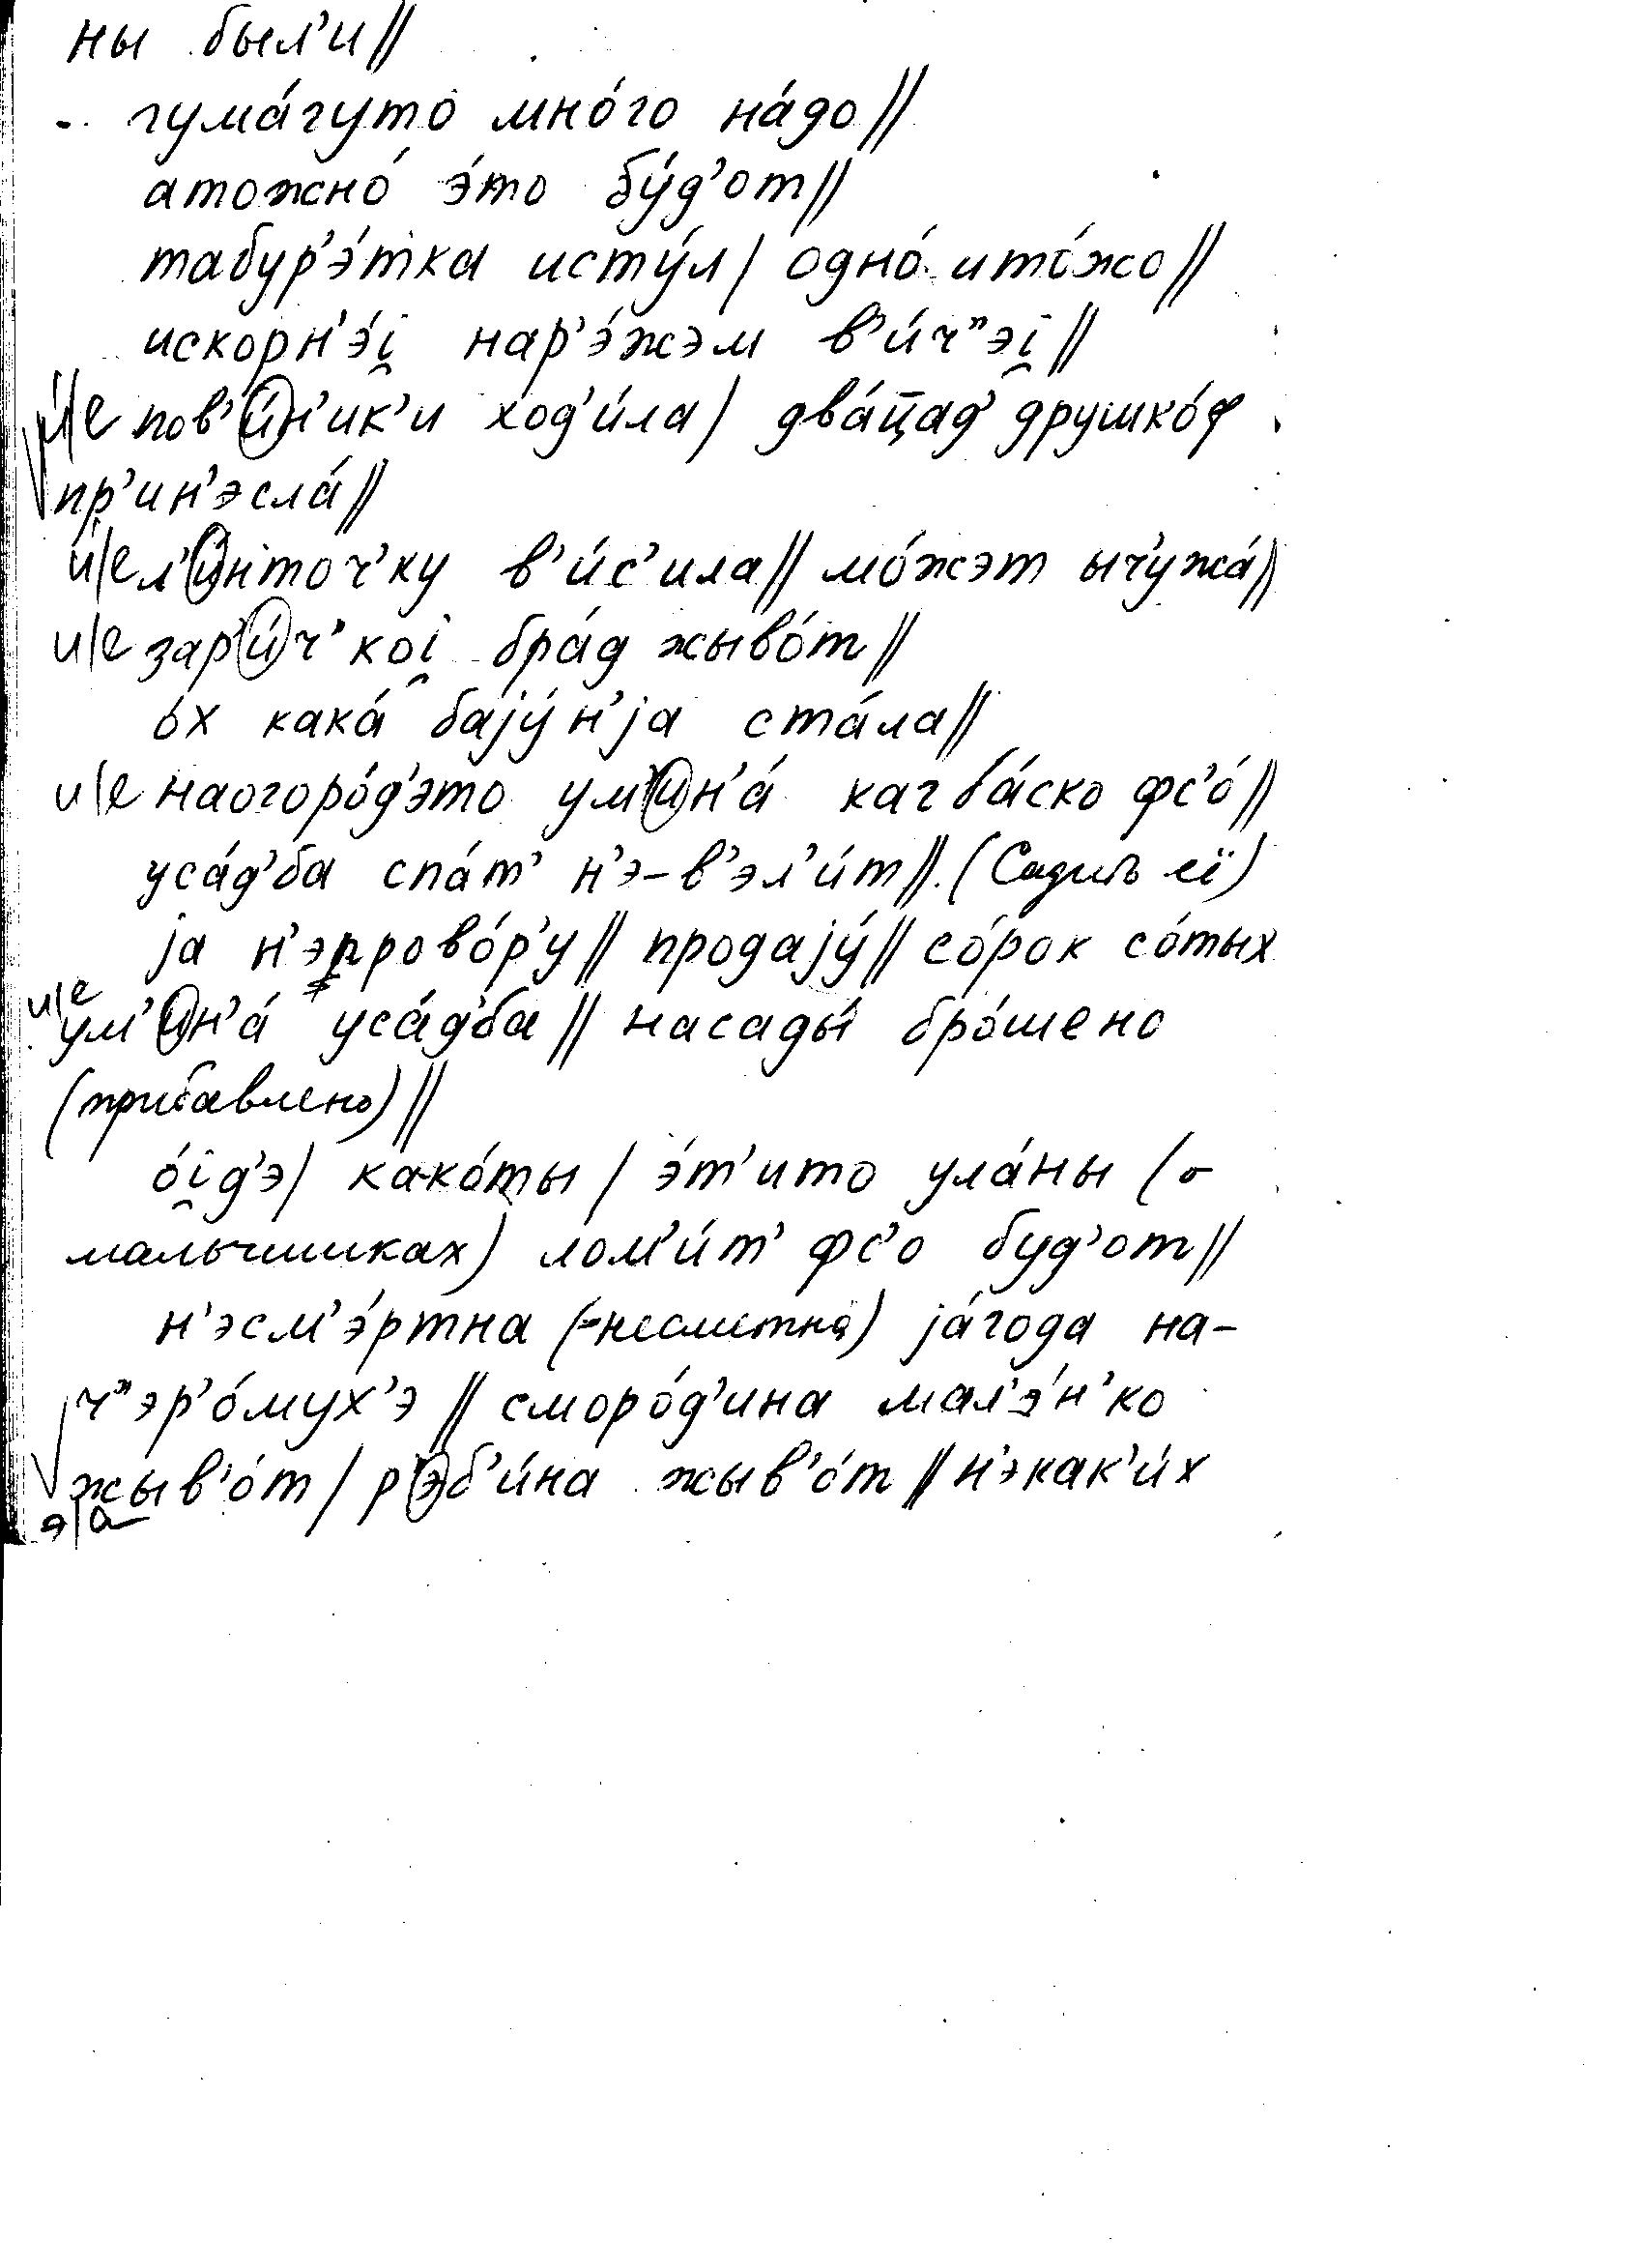 ны был'и//
гума́гуто мно́го на́до//
атожно́ э́то бу́д'от//
табур'э́тка исту́л/ одно́ ито́жо//
искорн'э́і̯ нар'э́жэм в'и́ч"эі̯//
и́/е пов'и́н'ик'и ход'и́ла/ два́ццад' друшко́ф
пр'ин'эсла́//
и́/е л'и́нточ'ку в'и́с'ила// мо́жэт ычужа́//
и/е зар'и́ч"коі̯ бра́д жыво́т//
о́х кака́ бајун'jа ста́ла//
и/е наогоро́д'это ум'ин'а́ каг ба́ско фс'о́//
уса́д'ба спа́т' н'э-в'эл'и́т//. (Садить её)
jа н'эпрово́р'у// продају́// со́рок со́тых
и/е
ум'ин'а́ уса́д'ба// насады́ бро́шено
(прибавлено)//
о́і̯д'э/ како́ты/ э́т'ито ула́ны (о
мальчишках) лом'и́т' фс'о буд'от//
н'эсм'э́ртна (=несметна) jа́года на-
ч"эр'о́мух'э// сморо́д'ина мал'э́н'ко
жыв'о́т/ р'эб'и́на жыв'о́т// н'экак'и́х
э/а